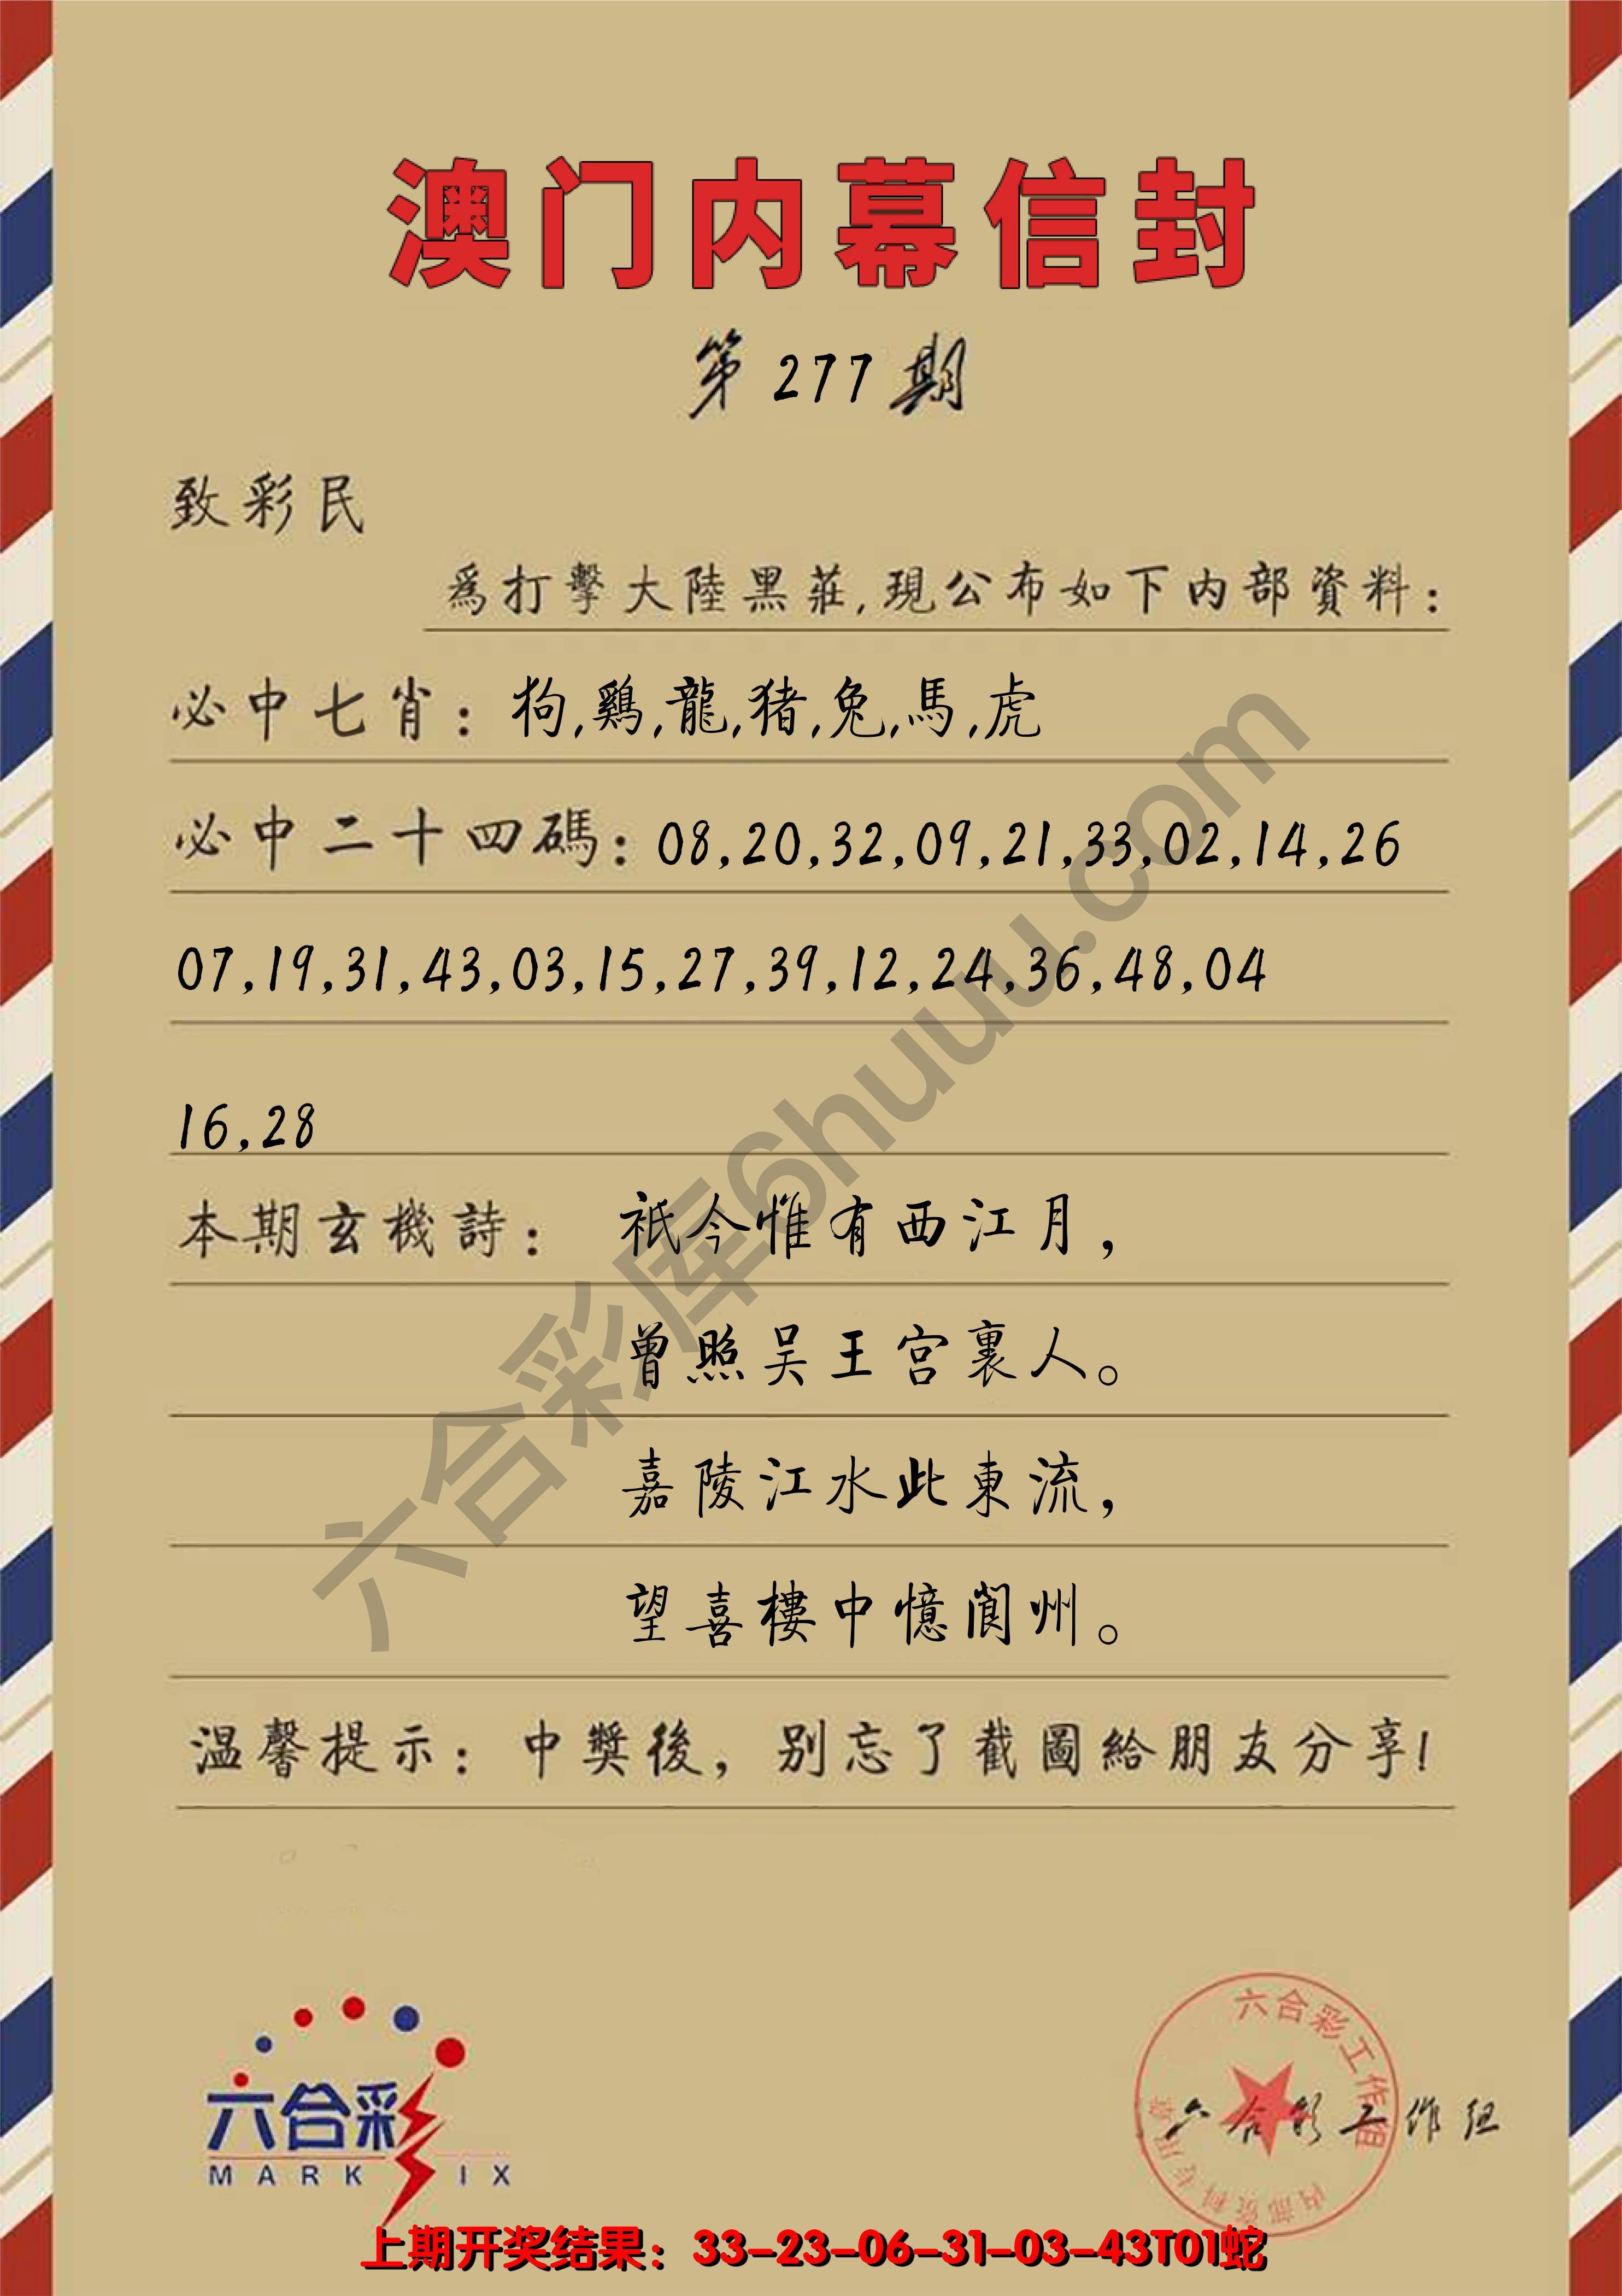 澳门内幕信封
第277期
致彩民
爲打擊大陸黑莊,現公布如下内部資料:
必中七肖:狗,鷄,龍,猪,兔,馬,虎
必中二十四碼:08,20,32,09,21,33,02,14,26
07,19,31,43,03,15,27,39,12,24,36,48,04
16,28
本期玄機詩: 祇今惟有西江月,
曾照吴王宫裏人。
嘉陵江水此東流,
望喜樓中憶閬州。
温馨提示:中獎後,别忘了截圖給朋友分享!
六合彩库6huuu.com
六合彩
MARK IX
六合彩工作组
内部资料专用章
六合彩工作组
上期开奖结果:33-23-06-31-03-43T01蛇